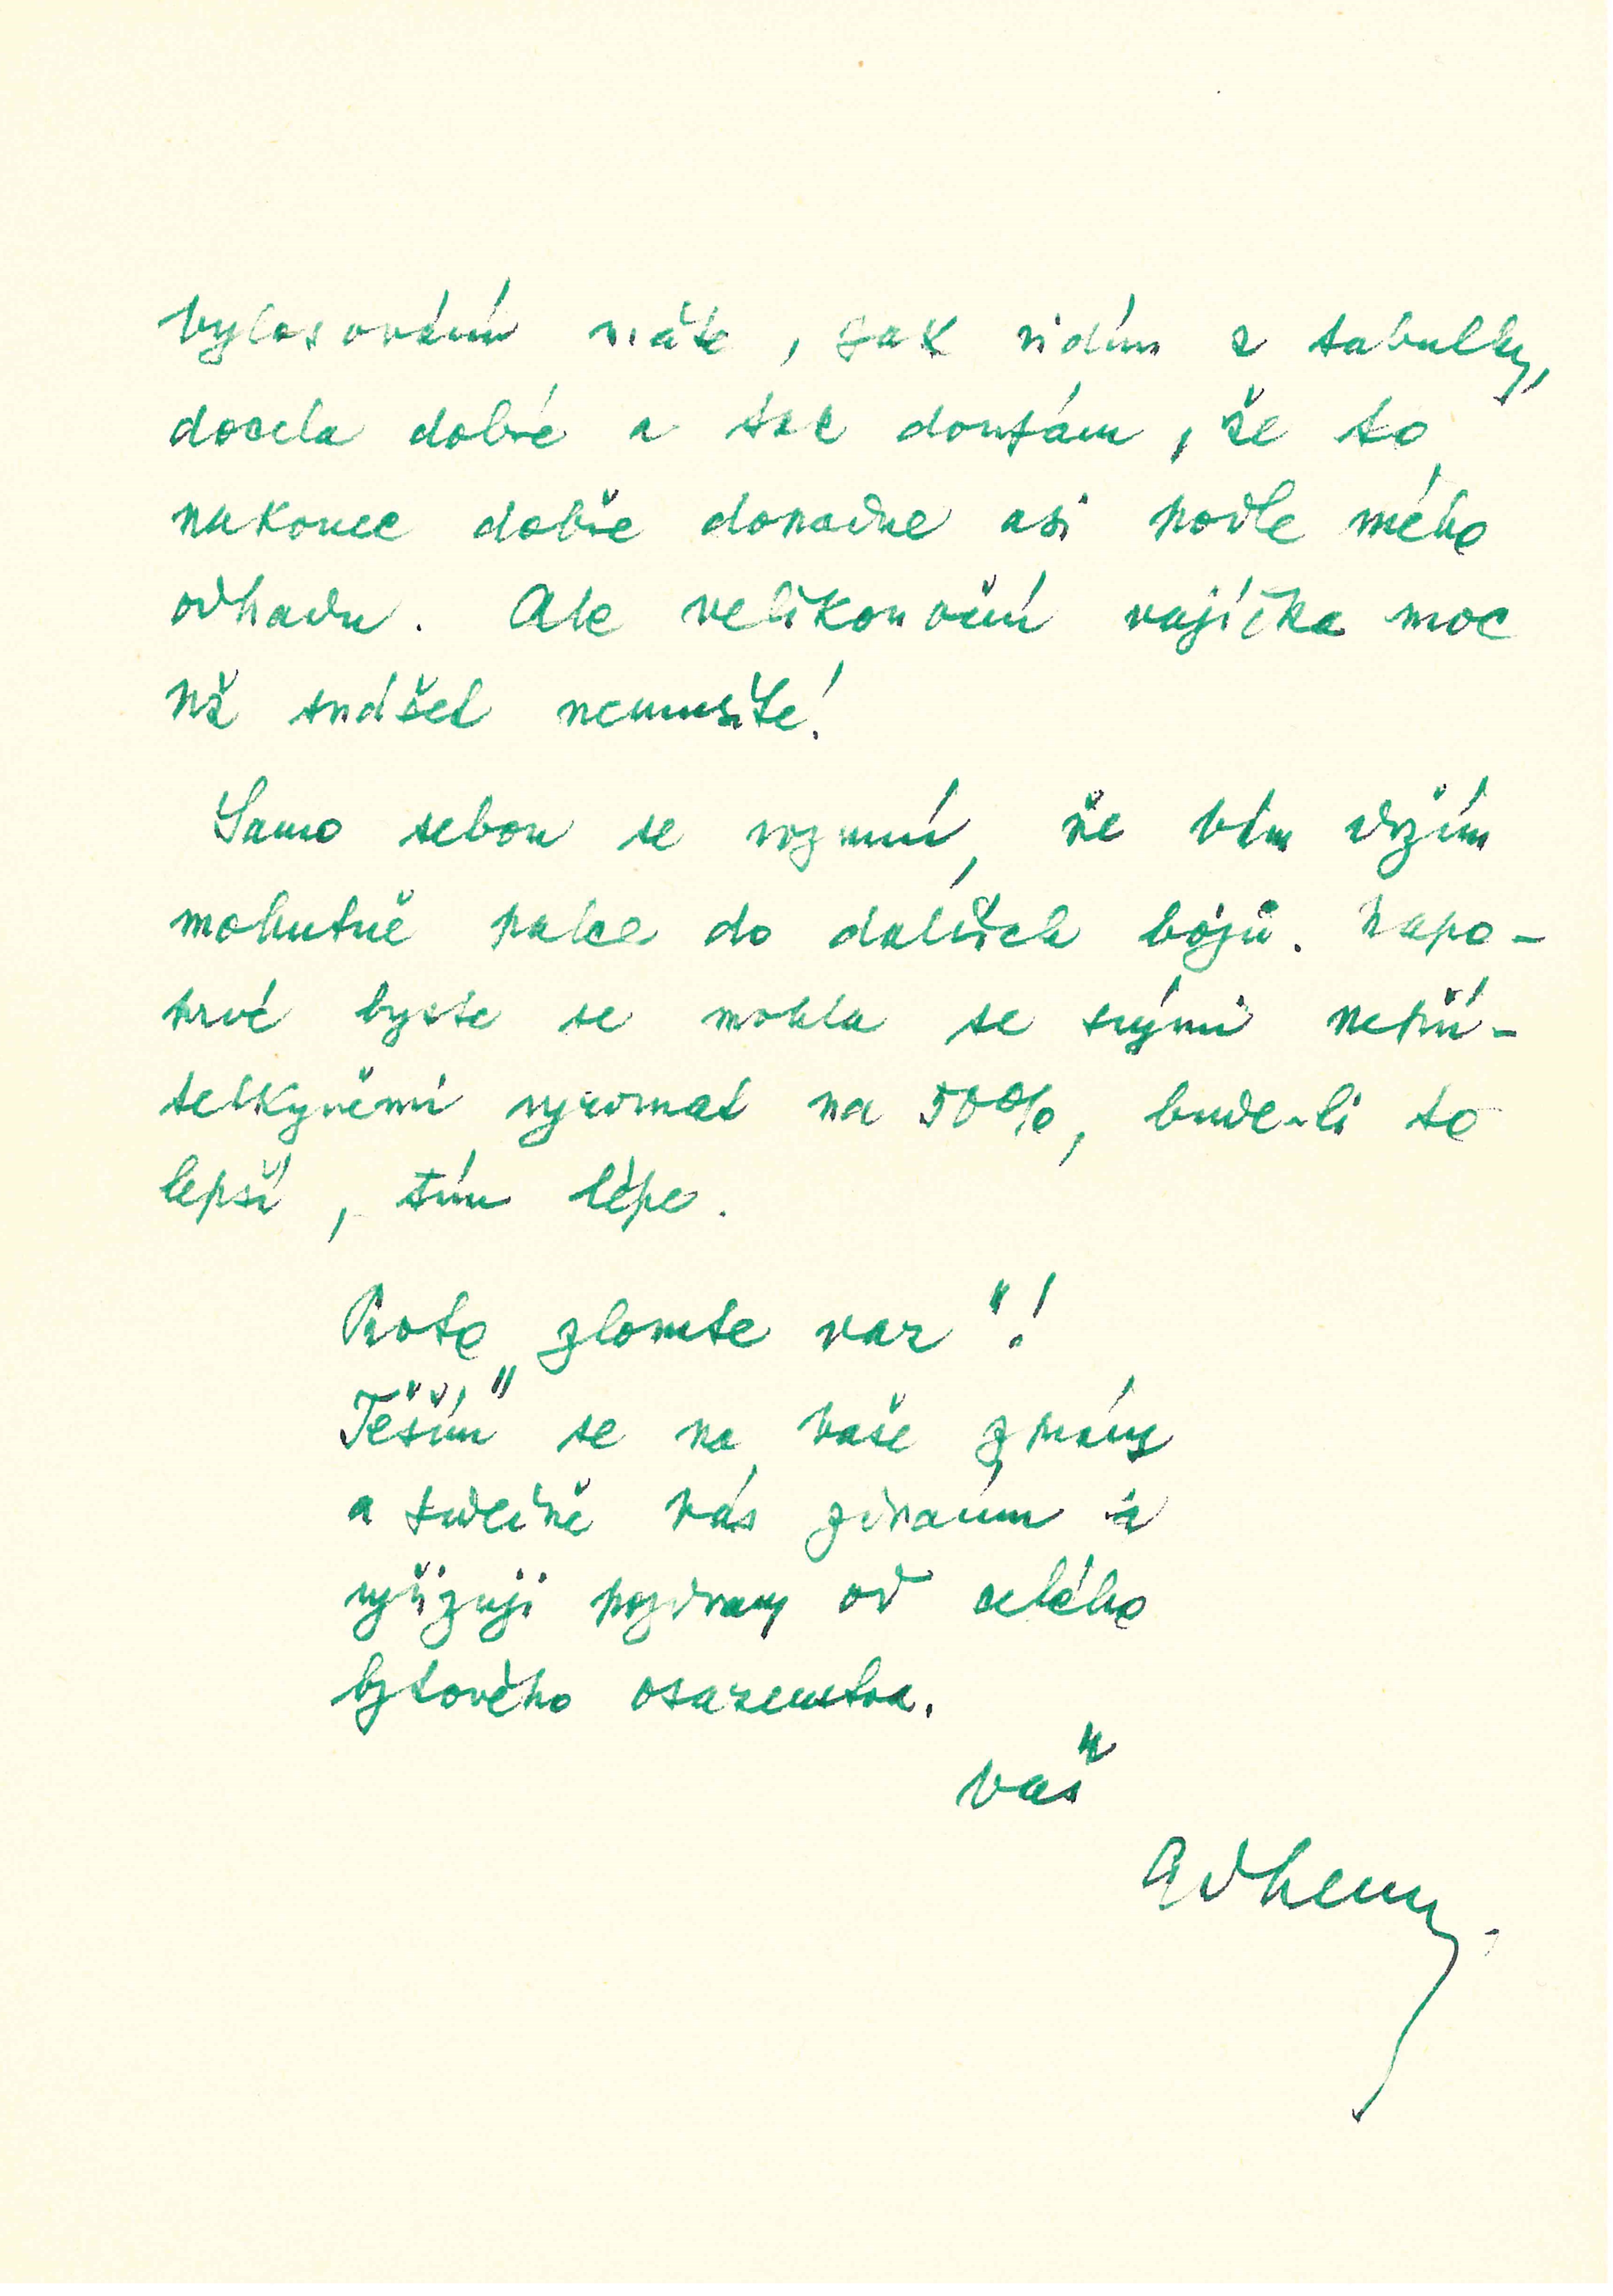 Vylosování máte, jak vidím z tabulky,
docela dobré a tak doufám, že to
nakonec dobře dopadne asi podle mého
odhadu. Ale velikonoční vajíčka moc
snášet nemusíte!
Samo sebou se rozumí, že Vám držím
mohutně palce do dalších bojů. Napo-
prvé byste se mohla se svými nepřá-
telkyněmi vyrovnat na 50%, bude-li to
lepší, tím lépe.
Proto „zlomte vaz“!
Těším se na Vaše zprávy
a srdečně Vás zdravím a
vyřizuji pozdravy od celého
bytového osazenstva.
Váš